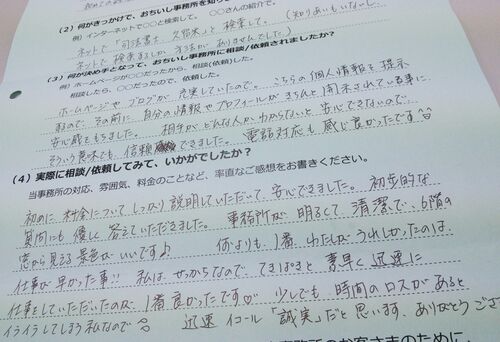 (2) 何がきっかけで、おちいし事務所を知り
例）インターネットで〇〇と検索して。 〇〇さんの紹介で。
ネットで「司法書士 久留米」と検索して。（知りあいもいないし、
ネットで検索するしか方法がありませんでした。）
(3) 何が決め手となって、おちいし事務所に相談/依頼されましたか?
例）ホームページが〇〇だったから、相談（依頼）した。
相談したら、〇〇だったので、依頼した。
ホームページやブログが充実していたので…。こちらの個人情報を提示
するので、その前に自分の情報やプロフィールがきちんと開示されている事に
安心感をもちました。 相手がどんな人かわからないと安心できないので、
そういう意味でも、信頼できました。 電話対応も感じ良かったです
(4) 実際に相談/依頼してみて、いかがでしたか?
当事務所の対応、雰囲気、料金のことなど、率直なご感想をお書きください。
初めに料金についてしっかり説明していただいて、安心できました。 初歩的な
質問にも優しく答えていただきました。 事務所が明るくて清潔で、6階の
窓から見る景色がいいです♪ 何よりも、1番わたしがうれしかったのは、
仕事が早かった事!! 私はせっかちなので、てきぱきと素早く迅速に
仕事をしていただいたのが、1番良かったです♡ 少しでも時間のロスがあると
イライラしてしまう私なので 迅速イコール「誠実」だと思います。ありがとうござ